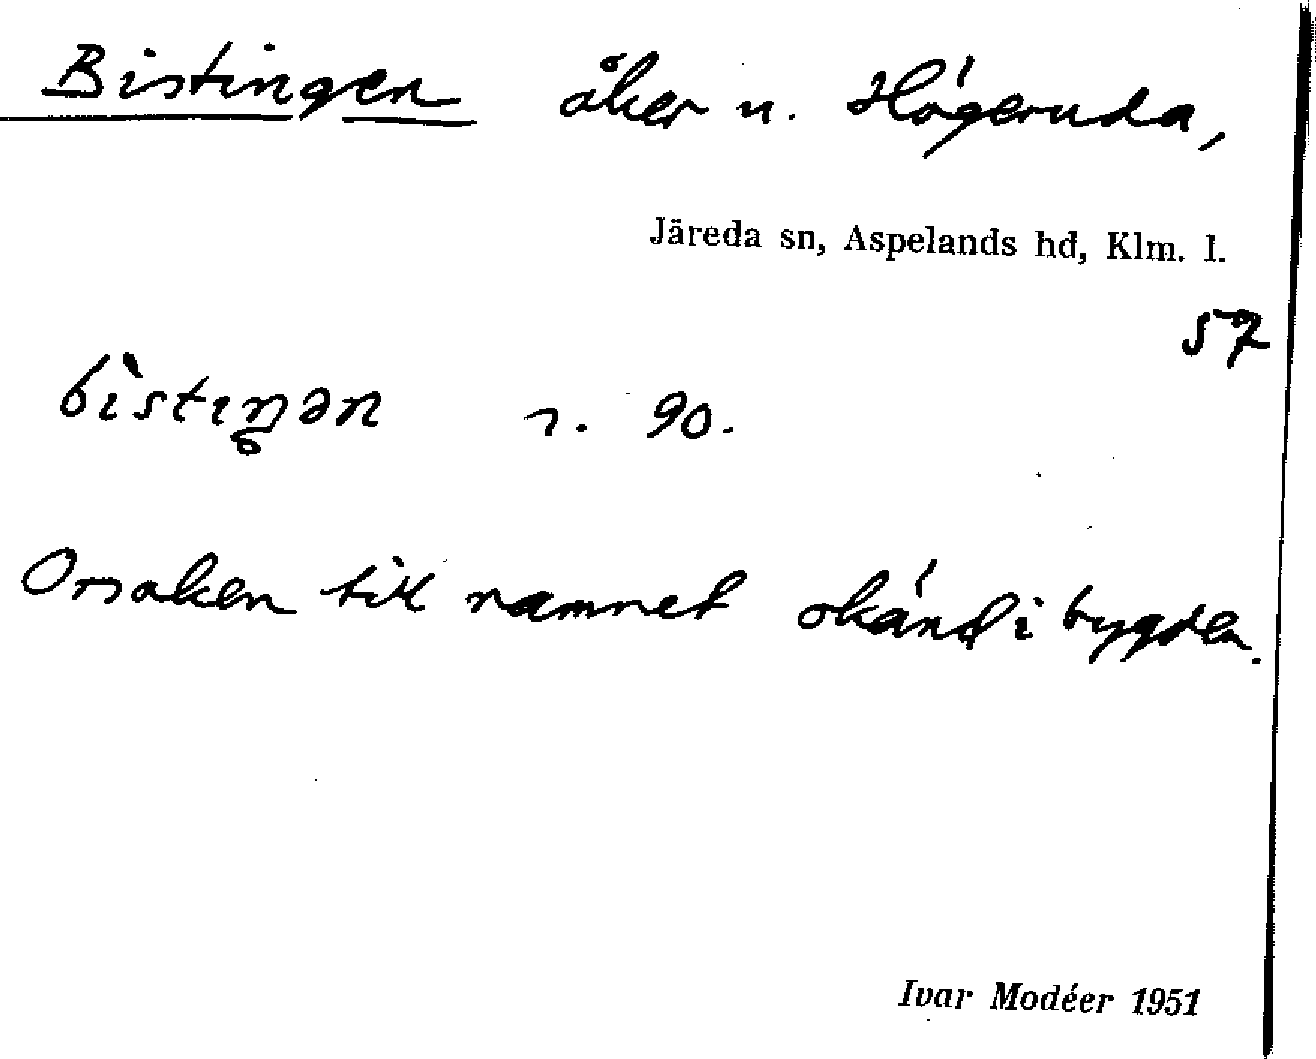 Bistingen åker u. Högeruda,
Järeda sn, Aspelands hd, Klm. l.
57
bìstıŋən r. 90.
Orsaken till namnet okänd i bygden.
Ivar Modéer 1951